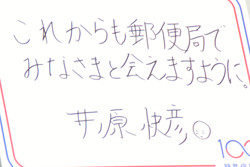 これからも郵便局で
みなさまと会えますように。
井原快彦